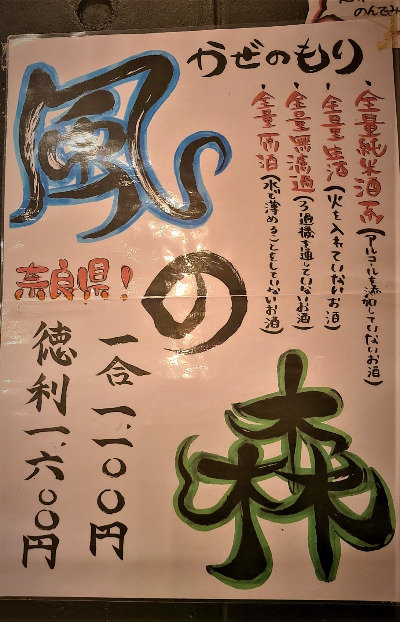 のんでみ
かぜのもり
風の森
・全量純米酒(アルコールを添加していないお酒)
・全量生酒(火を入れていないお酒)
・全量無濾過(ろ過機を通していないお酒)
・全量原酒(水で薄めることをしていないお酒)
奈良県!
一合 一、一〇〇円
徳利 一、六〇〇円